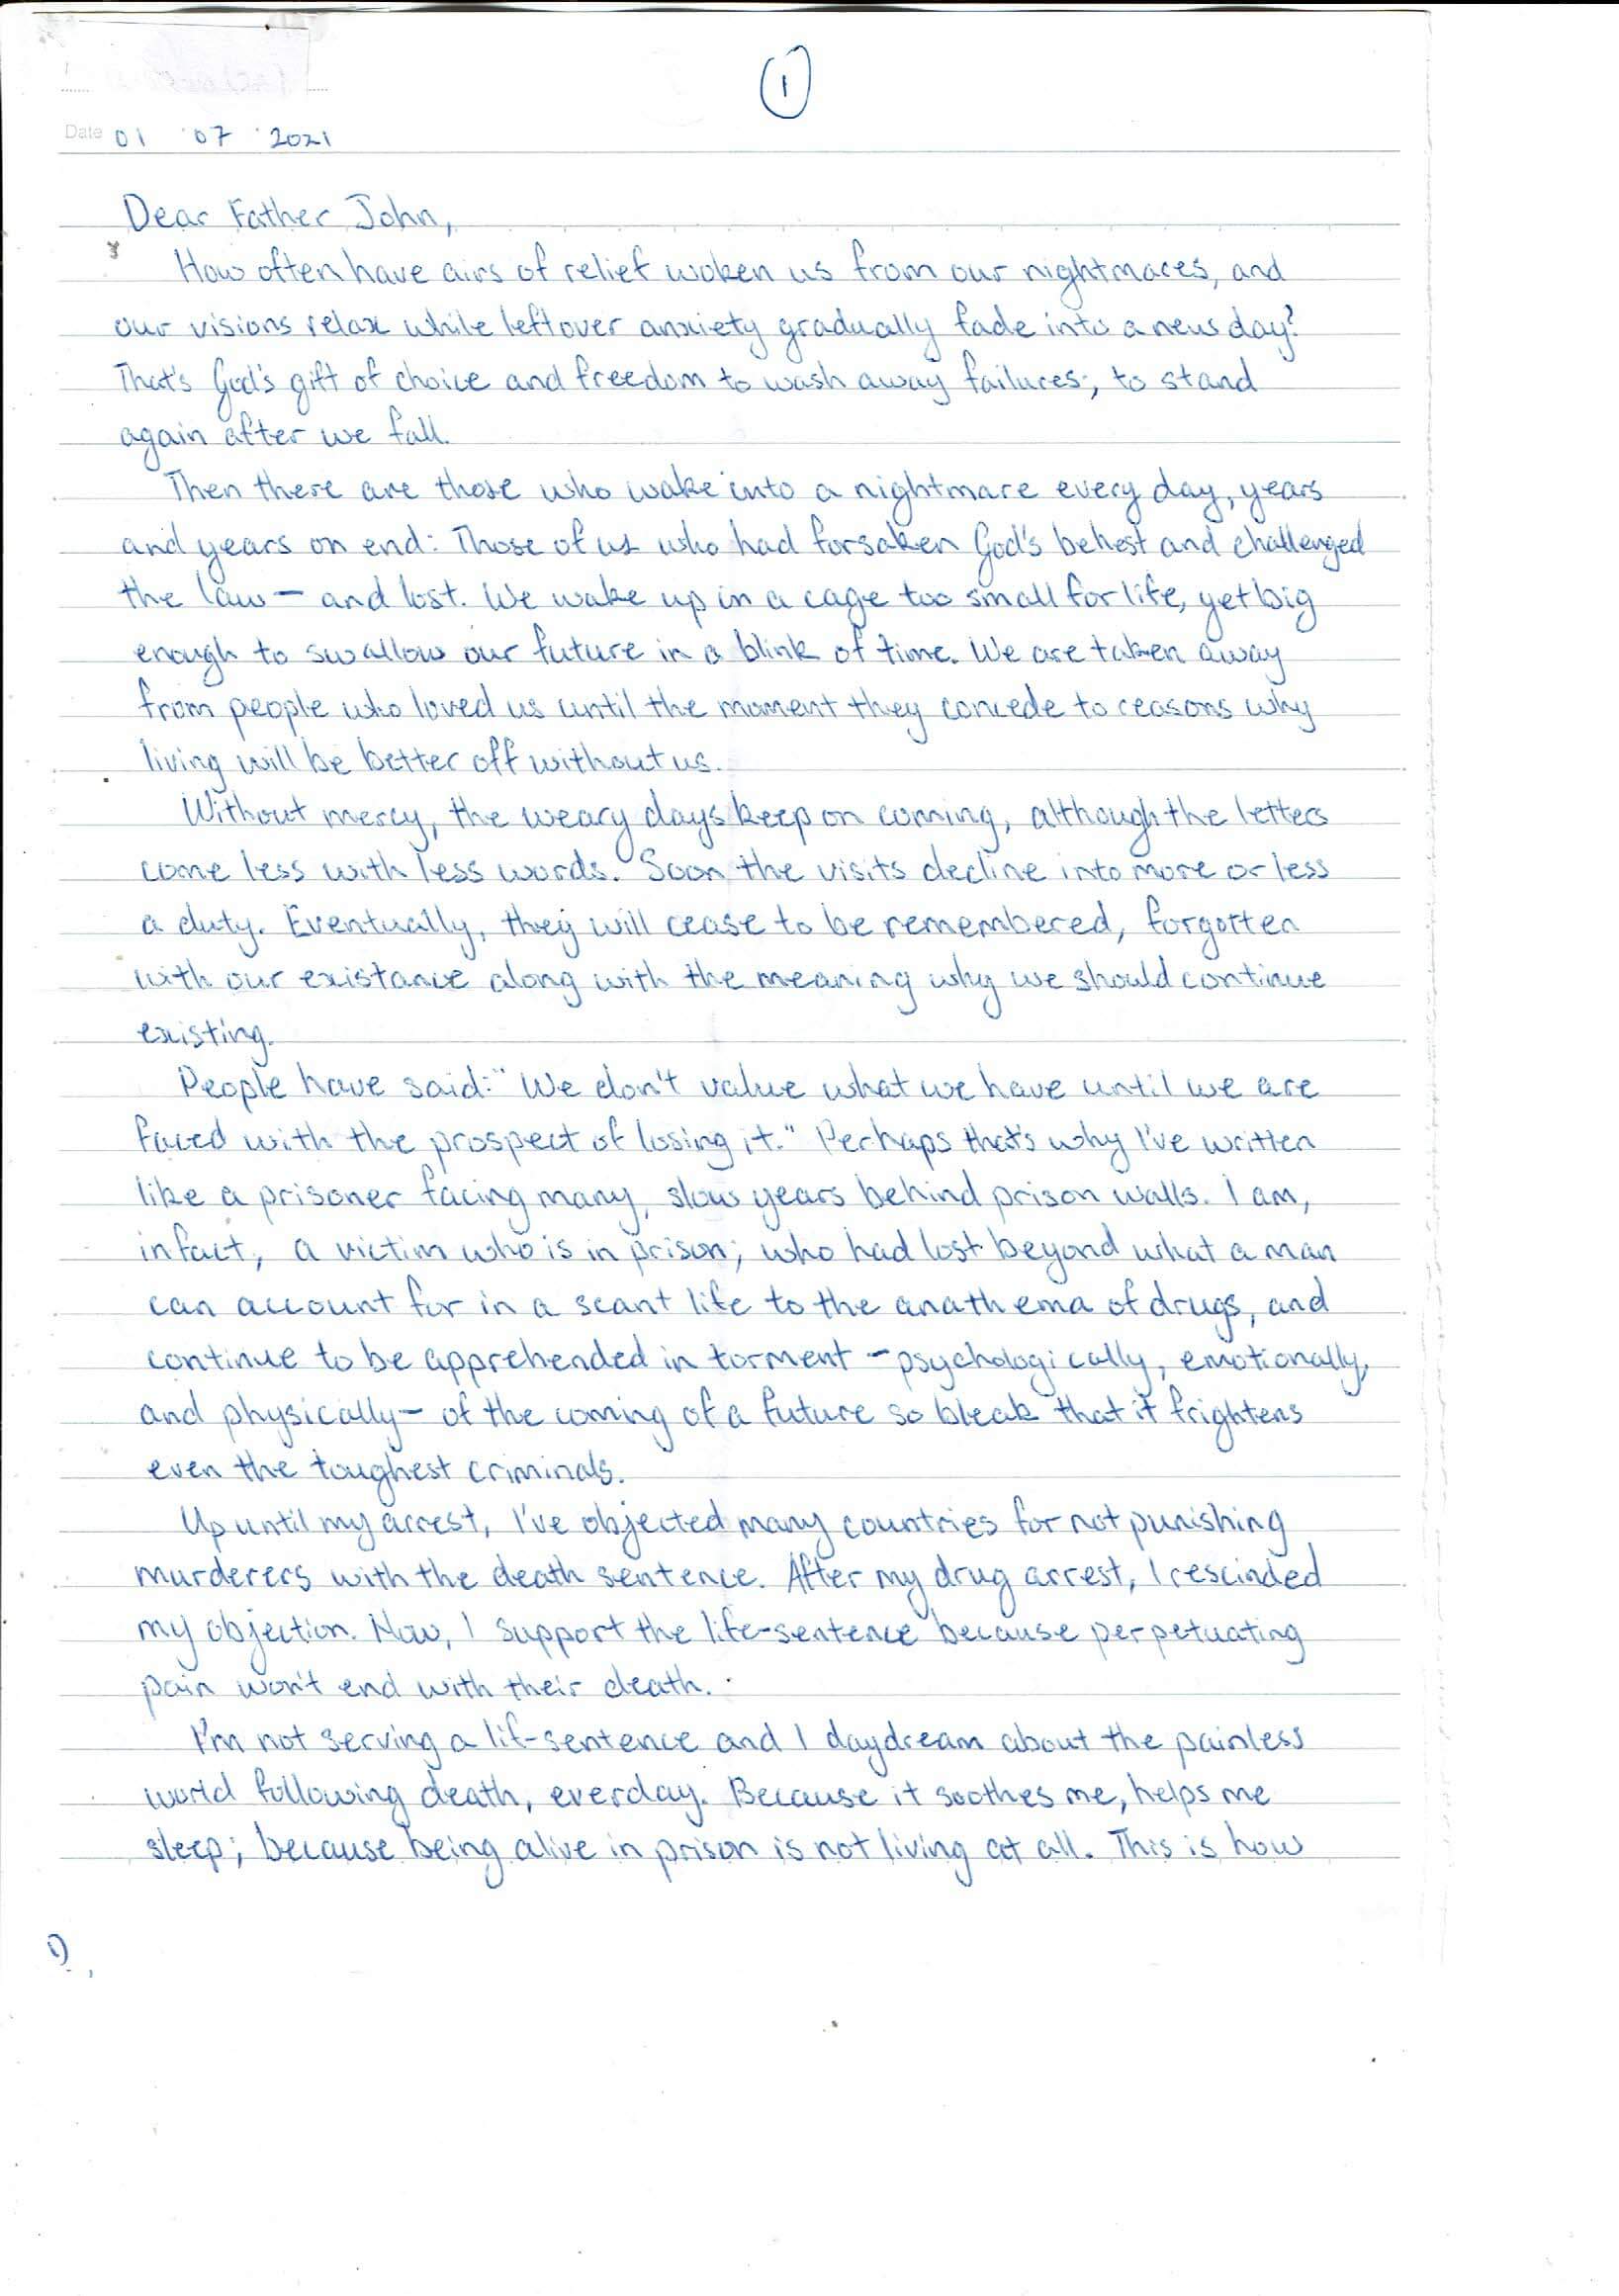 1
Date 01 07 2021
Dear Father John,
How often have airs of relief woken us from our nightmares, and
our visions relax while leftover anxiety gradually fade into a new day?
That's God's gift of choice and freedom to wash away failures; to stand
again after we fall.
Then there are those who wake into a nightmare every day, years
and years on end: Those of us who had forsaken God's behest and challenged
the law - and lost. We wake up in a cage too small for life, yet big
enough to swallow our future in a blink of time. We are taken away
from people who loved us until the moment they concede to reasons why
living will be better off without us.
Without mercy, the weary days keep on coming, although the letters
come less with less words. Soon the visits decline into more or less
a duty. Eventually, they will cease to be remembered, forgotten
with our existance along with the meaning why we should continue
existing.
People have said: "We don't value what we have until we are
faced with the prospect of losing it." Perhaps that's why I've written
like a prisoner facing many, slow years behind prison walls. I am,
infact, a victim who is in prison; who had lost beyond what a man
can account for in a scant life to the anathema of drugs, and
continue to be apprehended in torment - psychologically, emotionally,
and physically - of the coming of a future so bleak that it frightens
even the toughest criminals.
Up until my arrest, I've objected many countries for not punishing
murderers with the death sentence. After my drug arrest, I rescinded
my objection. Now, I support the life-sentence because perpetuating
pain won't end with their death.
I'm not serving a lif-sentence and I daydream about the painless
world following death, everday. Because it soothes me, helps me
sleep; because being alive in prison is not living at all. This is how